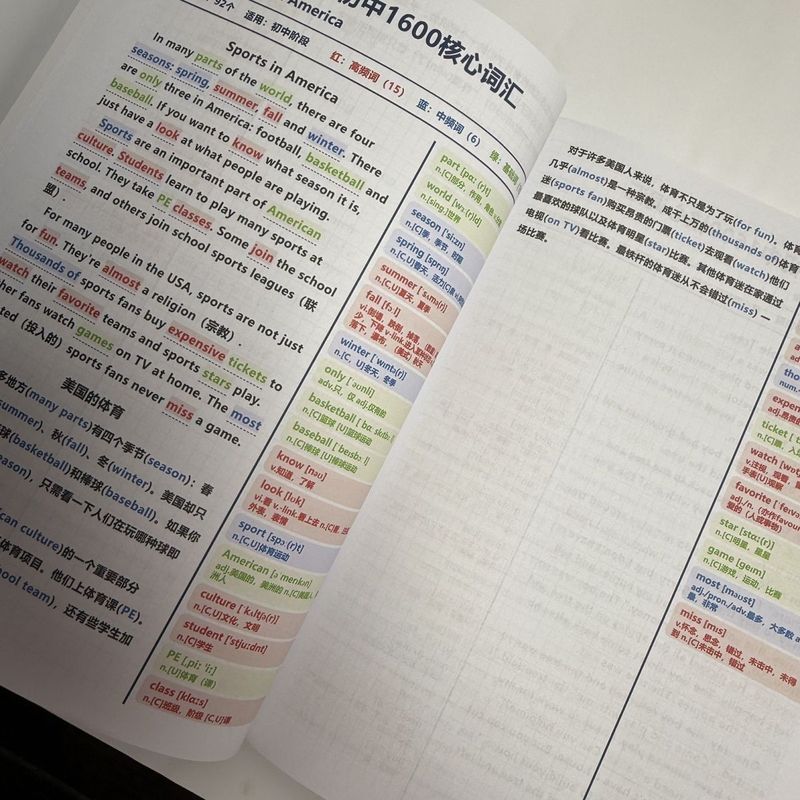 初中1600核心词汇
America
92个 适用：初中阶段
红：高频词（15） 蓝：中频词（6）
Sports in America
In many parts of the world, there are four
seasons: spring, summer, fall and winter. There
are only three in America: football, basketball and
baseball. If you want to know what season it is,
just have a look at what people are playing.
Sports are an important part of American
culture. Students learn to play many sports at
school. They take PE classes. Some join the school
teams, and others join school sports leagues（联
盟）.
For many people in the USA, sports are not just
for fun. They're almost a religion（宗教）.
Thousands of sports fans buy expensive tickets to
watch their favorite teams and sports stars play.
her fans watch games on TV at home. The most
ted（投入的）sports fans never miss a game.
美国的体育
多地方(many parts)有四个季节(season)：春
summer)、秋(fall)、冬(winter)。美国却只
球(basketball)和棒球(baseball)。如果你
eason)，只需看一下人们在玩哪种球即
can culture)的一个重要部分
体育项目。他们上体育课(PE)。
hool team)，还有些学生加
part [pɑː(r)t]
world [wɜː(r)ld]
n.[sing.]世界
season ['siːzn]
n.[C]季，季节，时器
spring [sprɪŋ]
summer ['sʌmə(r)]
n.[C,U]夏天，夏季
fall [fɔːl]
winter ['wɪntə(r)]
n.[C, U]冬天，冬季
only ['əʊnli]
adv.只，仅 adj.仅有的
basketball
n.[C]篮球 [U]篮球运动
baseball ['beɪsbɔːl]
n.[C]棒球 [U]棒球运动
know [nəʊ]
v.知道，了解
look [lʊk]
外表，表情
sport [spɔː(r)t]
n.[C,U]体育运动
American [ə'merɪkən]
culture ['kʌltʃə(r)]
n.[C,U]文化，文明
student ['stjuːdnt]
n.[C]学生
PE [ˌpiː'iː]
n.[U]体育（课）
class [klɑːs]
n.[C]班级，阶级 [C,U]课
对于许多美国人来说，体育不只是为了玩(for fun)。体育
几乎(almost)是一种宗教。成千上万的(thousands of)体育
迷(sports fan)购买昂贵的门票(ticket)去观看(watch)他们
最喜欢的球队以及体育明星(star)比赛。其他体育迷在家通过
电视(on TV)看比赛。最铁杆的体育迷从不会错过(miss)一
场比赛。
star [stɑː(r)]
n.[C]明星，星星
game [ɡeɪm]
n.[C]游戏，运动，比赛
most [məʊst]
adj./pron./adv.最多，大多数
最，非常
miss [mɪs]
v.怀念，思念，错过，未击中，未得
到 n.[C]未击中，错过